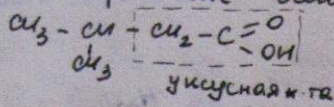 CH₃ - CH - CH₂ - C = O
CH₃ OH
уксусная к-та